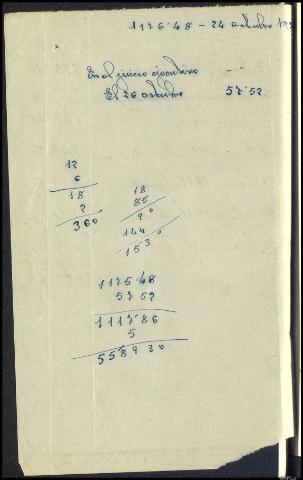 1176·48 - 24 octubre
En el juicio ejecutivo
El 26 octubre 57·52
12
6
18
2
360
18
85
90
144 0
1530
1175·48
57 52
1117·86
5
5589 30